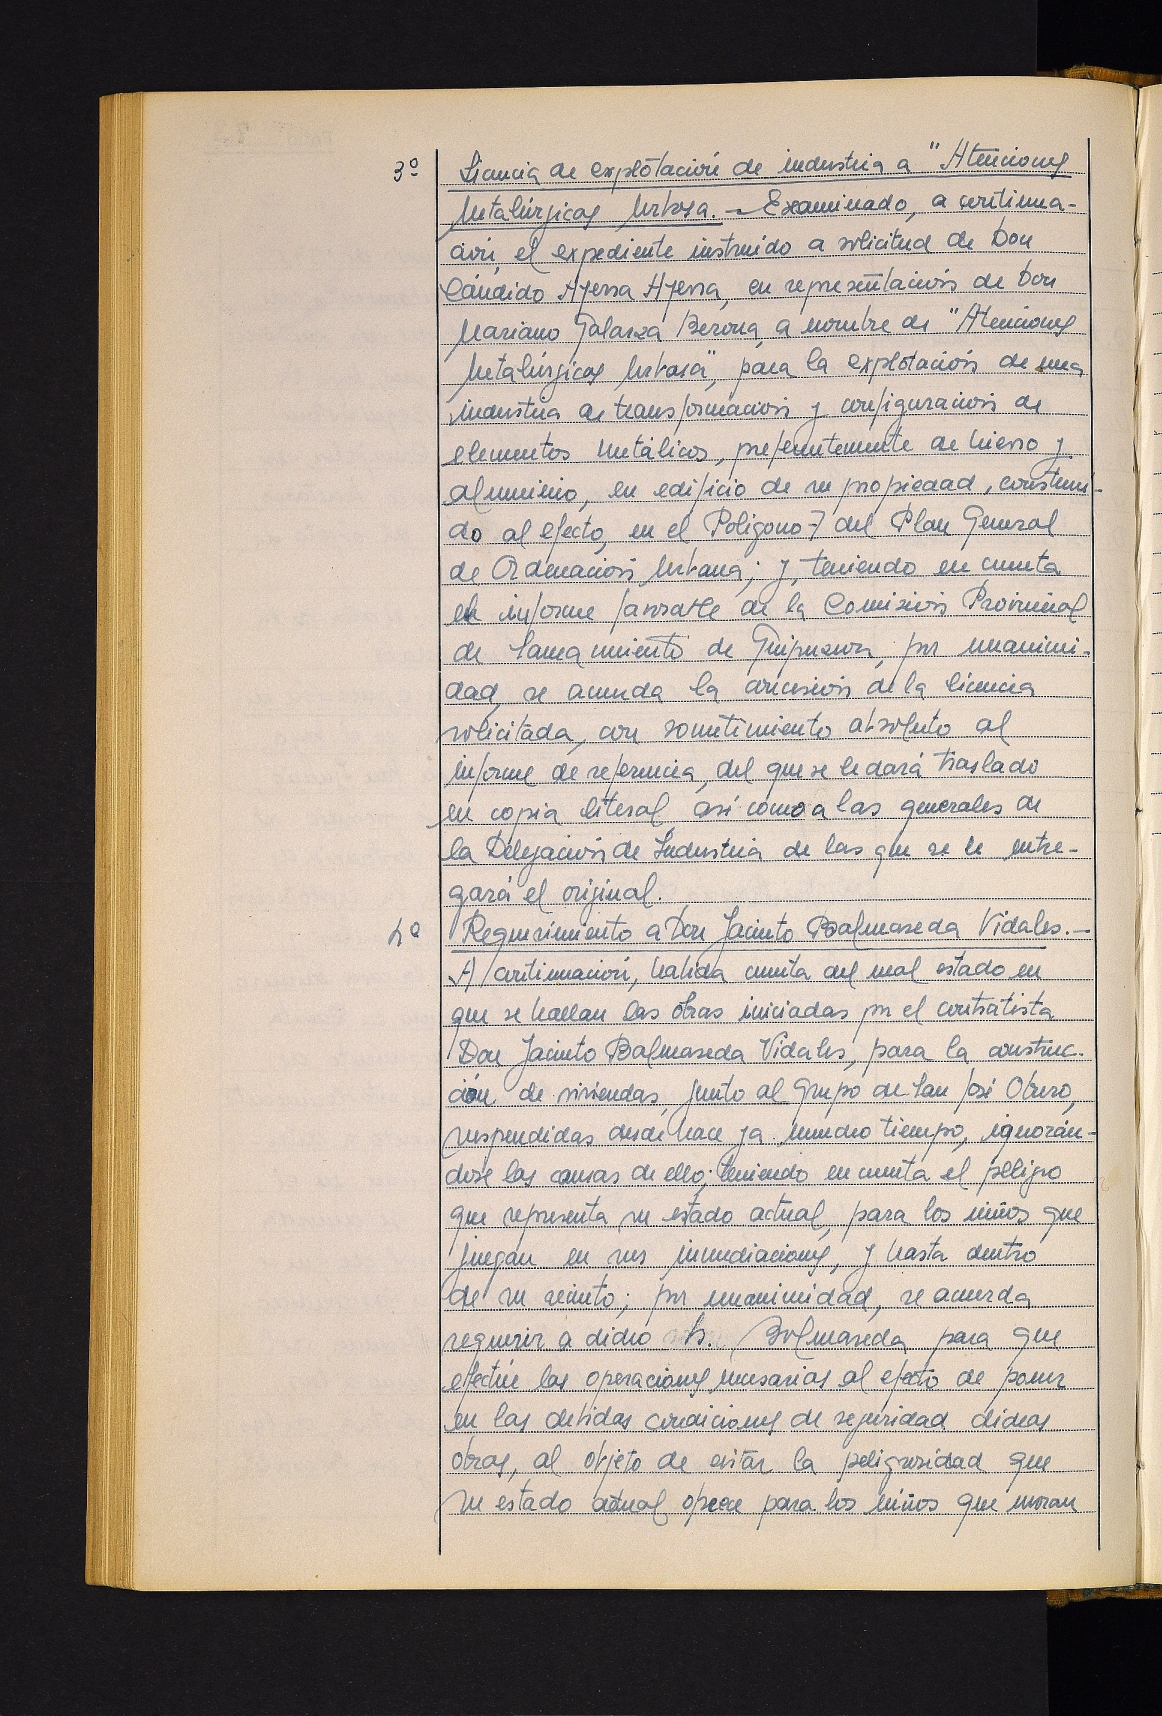 3º Licencia de explotación de industria a "Atenciones
Metalúrgicas Urbasa.- Examinado, a continua-
ción, el expediente instruído a solicitud de Don
Cándido Ayerra Ayerra, en representación de Don
Mariano Galarza Berona, a nombre de "Atenciones
Metalúrgicas Urbasa", para la explotación de una
industria de transformación y configuración de
elementos metálicos, preferentemente de hierro y
aluminio, en edificio de su propiedad, construi-
do al efecto, en el Polígono-7 del Plan General
de Ordenación Urbana; y, teniendo en cuenta
el informe favorable de la Comisión Provincial
de Saneamiento de Guipuzcoa, por unanimi-
dad, se acuerda la concesión de la licencia
solicitada, con sometimiento absoluto al
informe de referencia, del que se le dará traslado
en copia literal así como a las generales de
la Delegación de Industria de las que se le entre-
gará el original.
4º Requerimiento a Don Jacinto Balmaseda Vidales.-
A continuación, habida cuenta del mal estado en
que se hallan las obras iniciadas por el contratista
Don Jacinto Balmaseda Vidales, para la construc-
ción de viviendas, junto al Grupo de San José Obrero,
suspendidas desde hace ya mucho tiempo, ignorán-
dose las causas de ello; teniendo en cuenta el peligro
que representa su estado actual, para los niños que
juegan en sus inmediaciones, y hasta dentro
de su recinto; por unanimidad, se acuerda
requerir a dicho Sr. Balmaseda para que
efectúe las operaciones necesarias al efecto de poner
en las debidas condiciones de seguridad dichas
obras, al objeto de evitar la peligrosidad que
su estado actual ofrece para los niños que moran